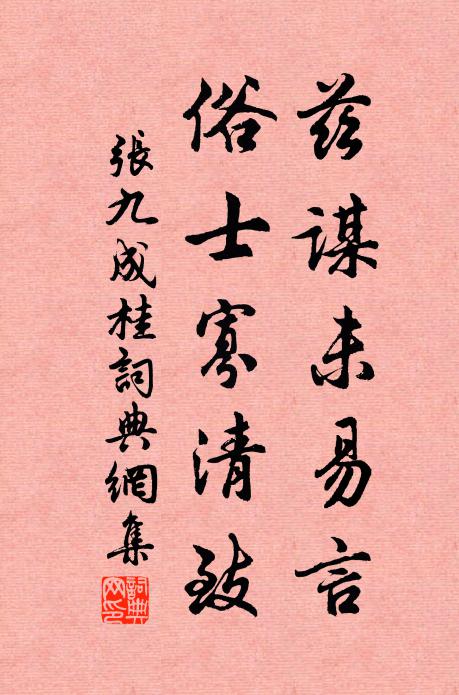 茲謀未易言
俗士寡清致
張九成桂詞典網集
詞典網印